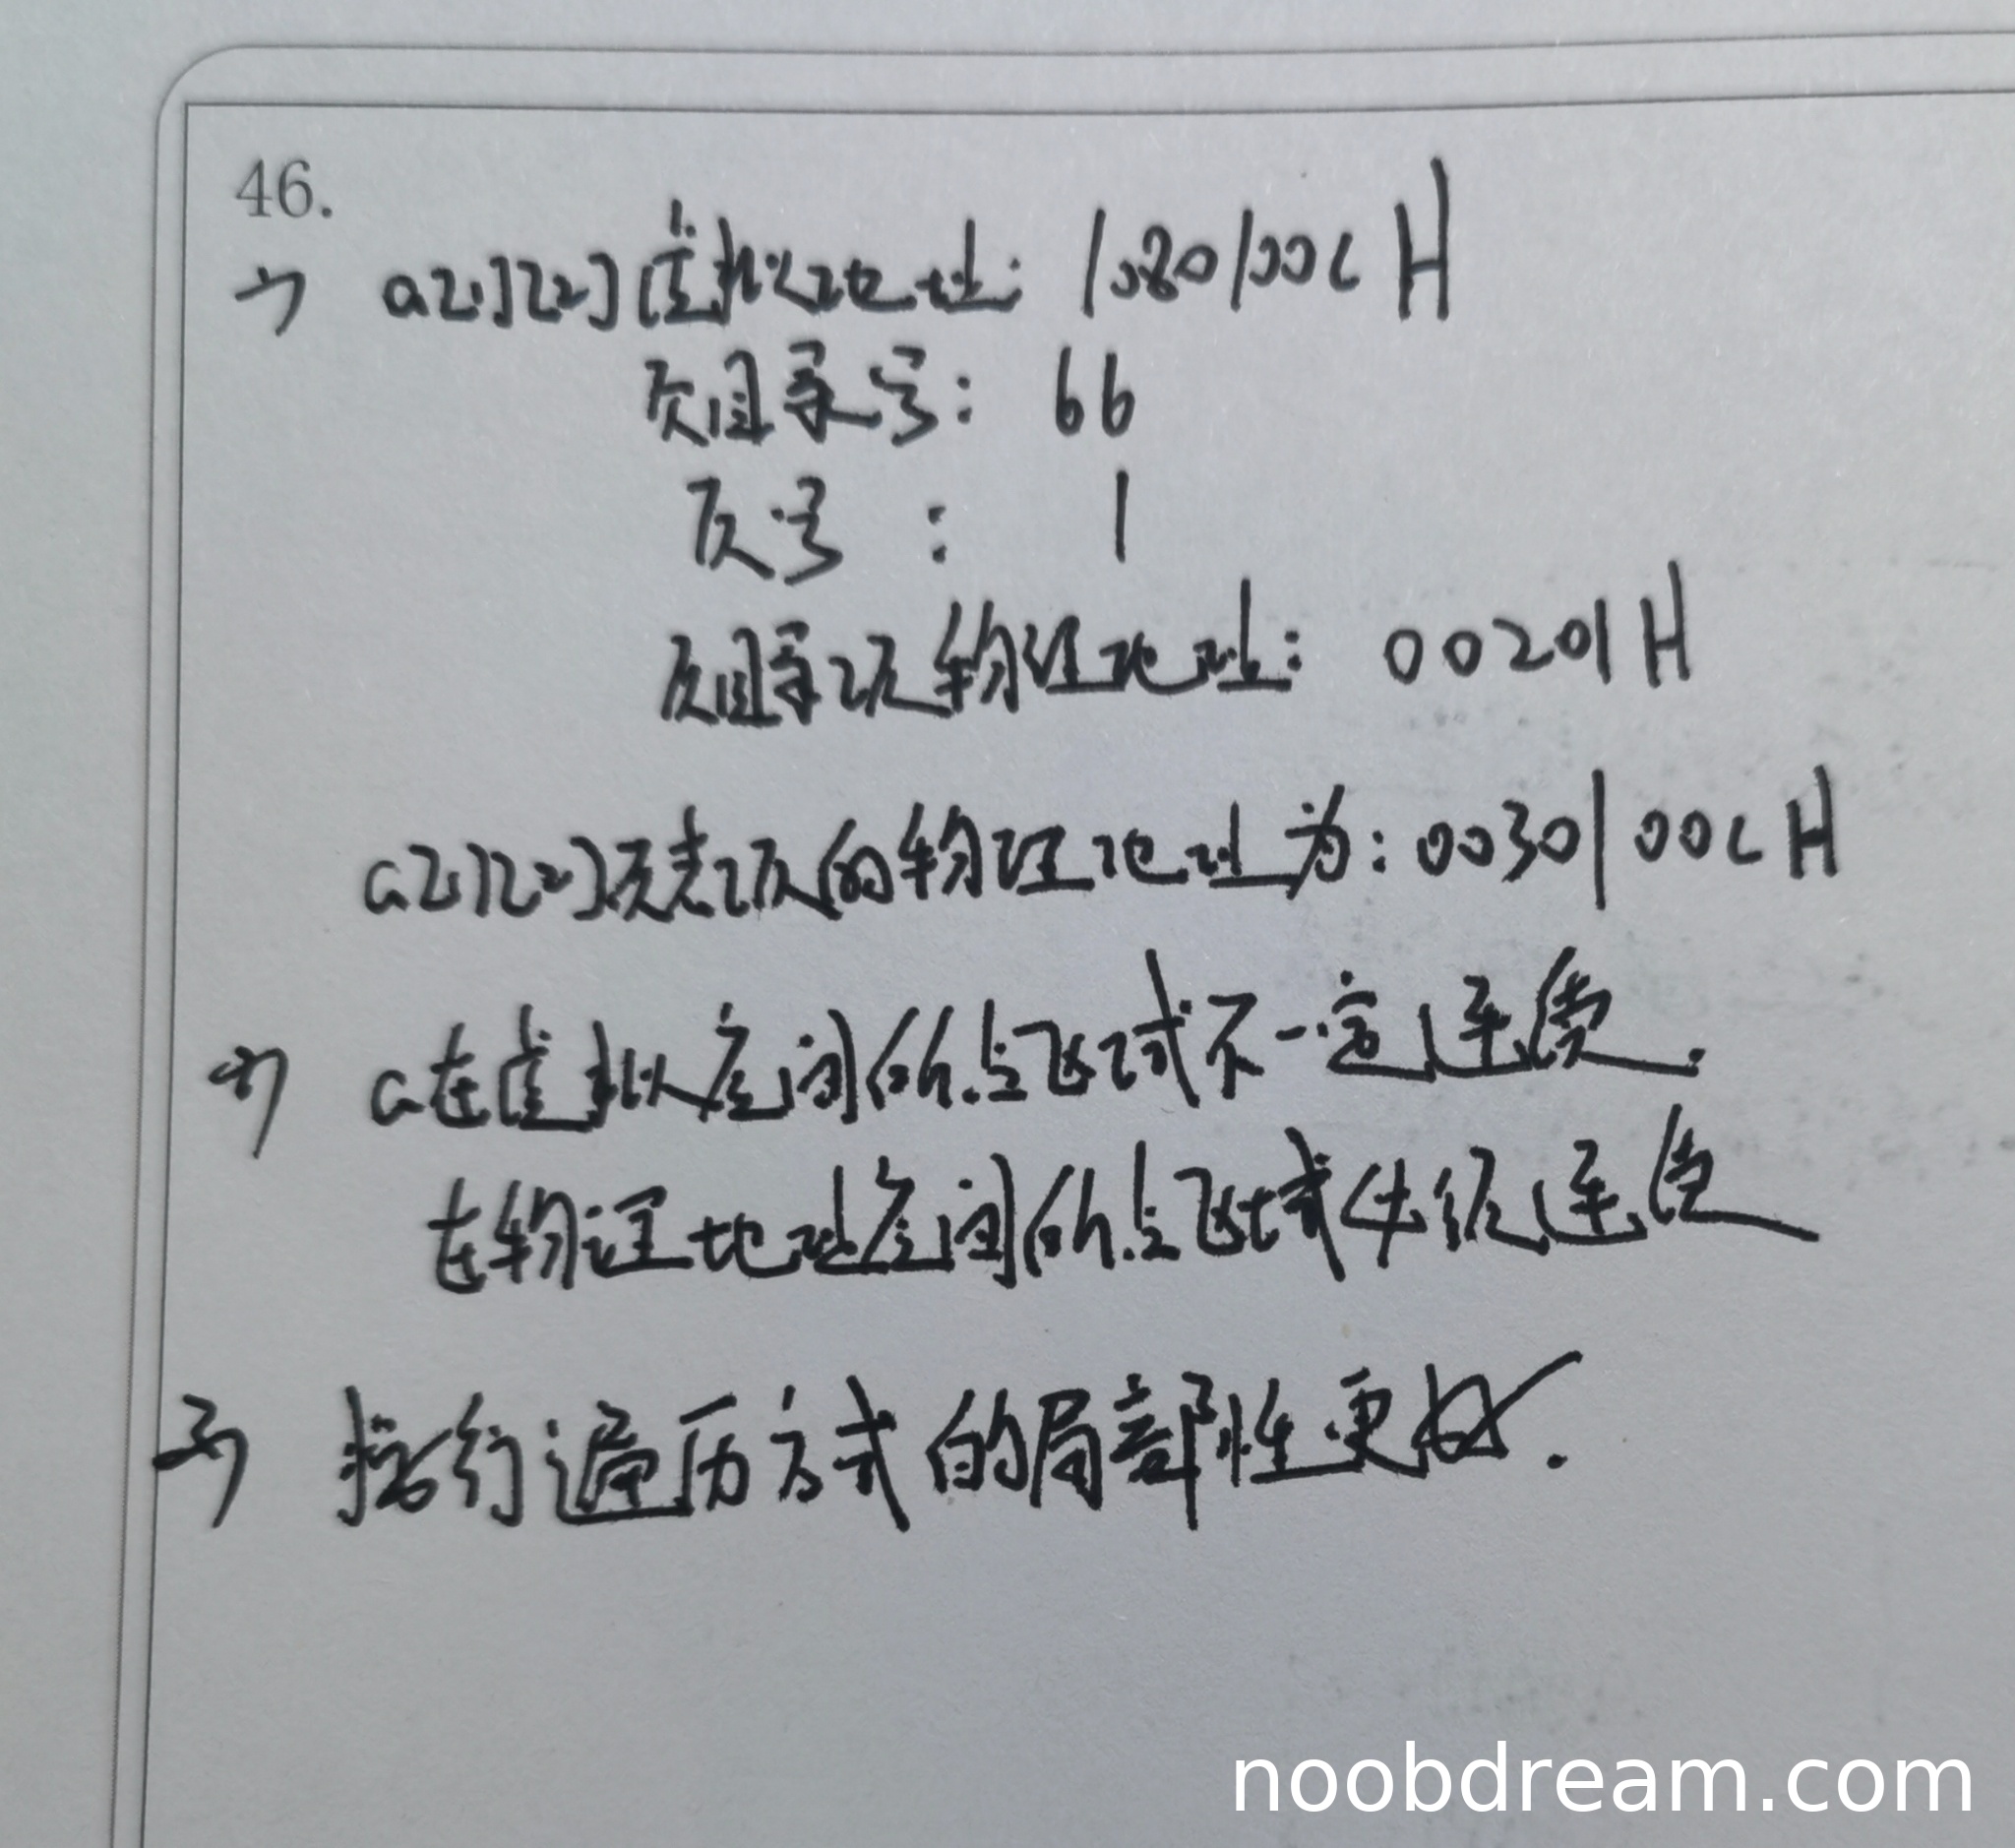 46.
1) a[1][2]虚拟地址: 1080100C H
页目录号: 66
页号 : 1
页目录项物理地址: 00201H
a[1][2]页表项的物理地址为: 0030100C H
2) a在虚拟空间的所占区域不一定连续.
在物理地址空间的所占区域必须连续
3) 按行遍历方式的局部性更好.
noobdream.com